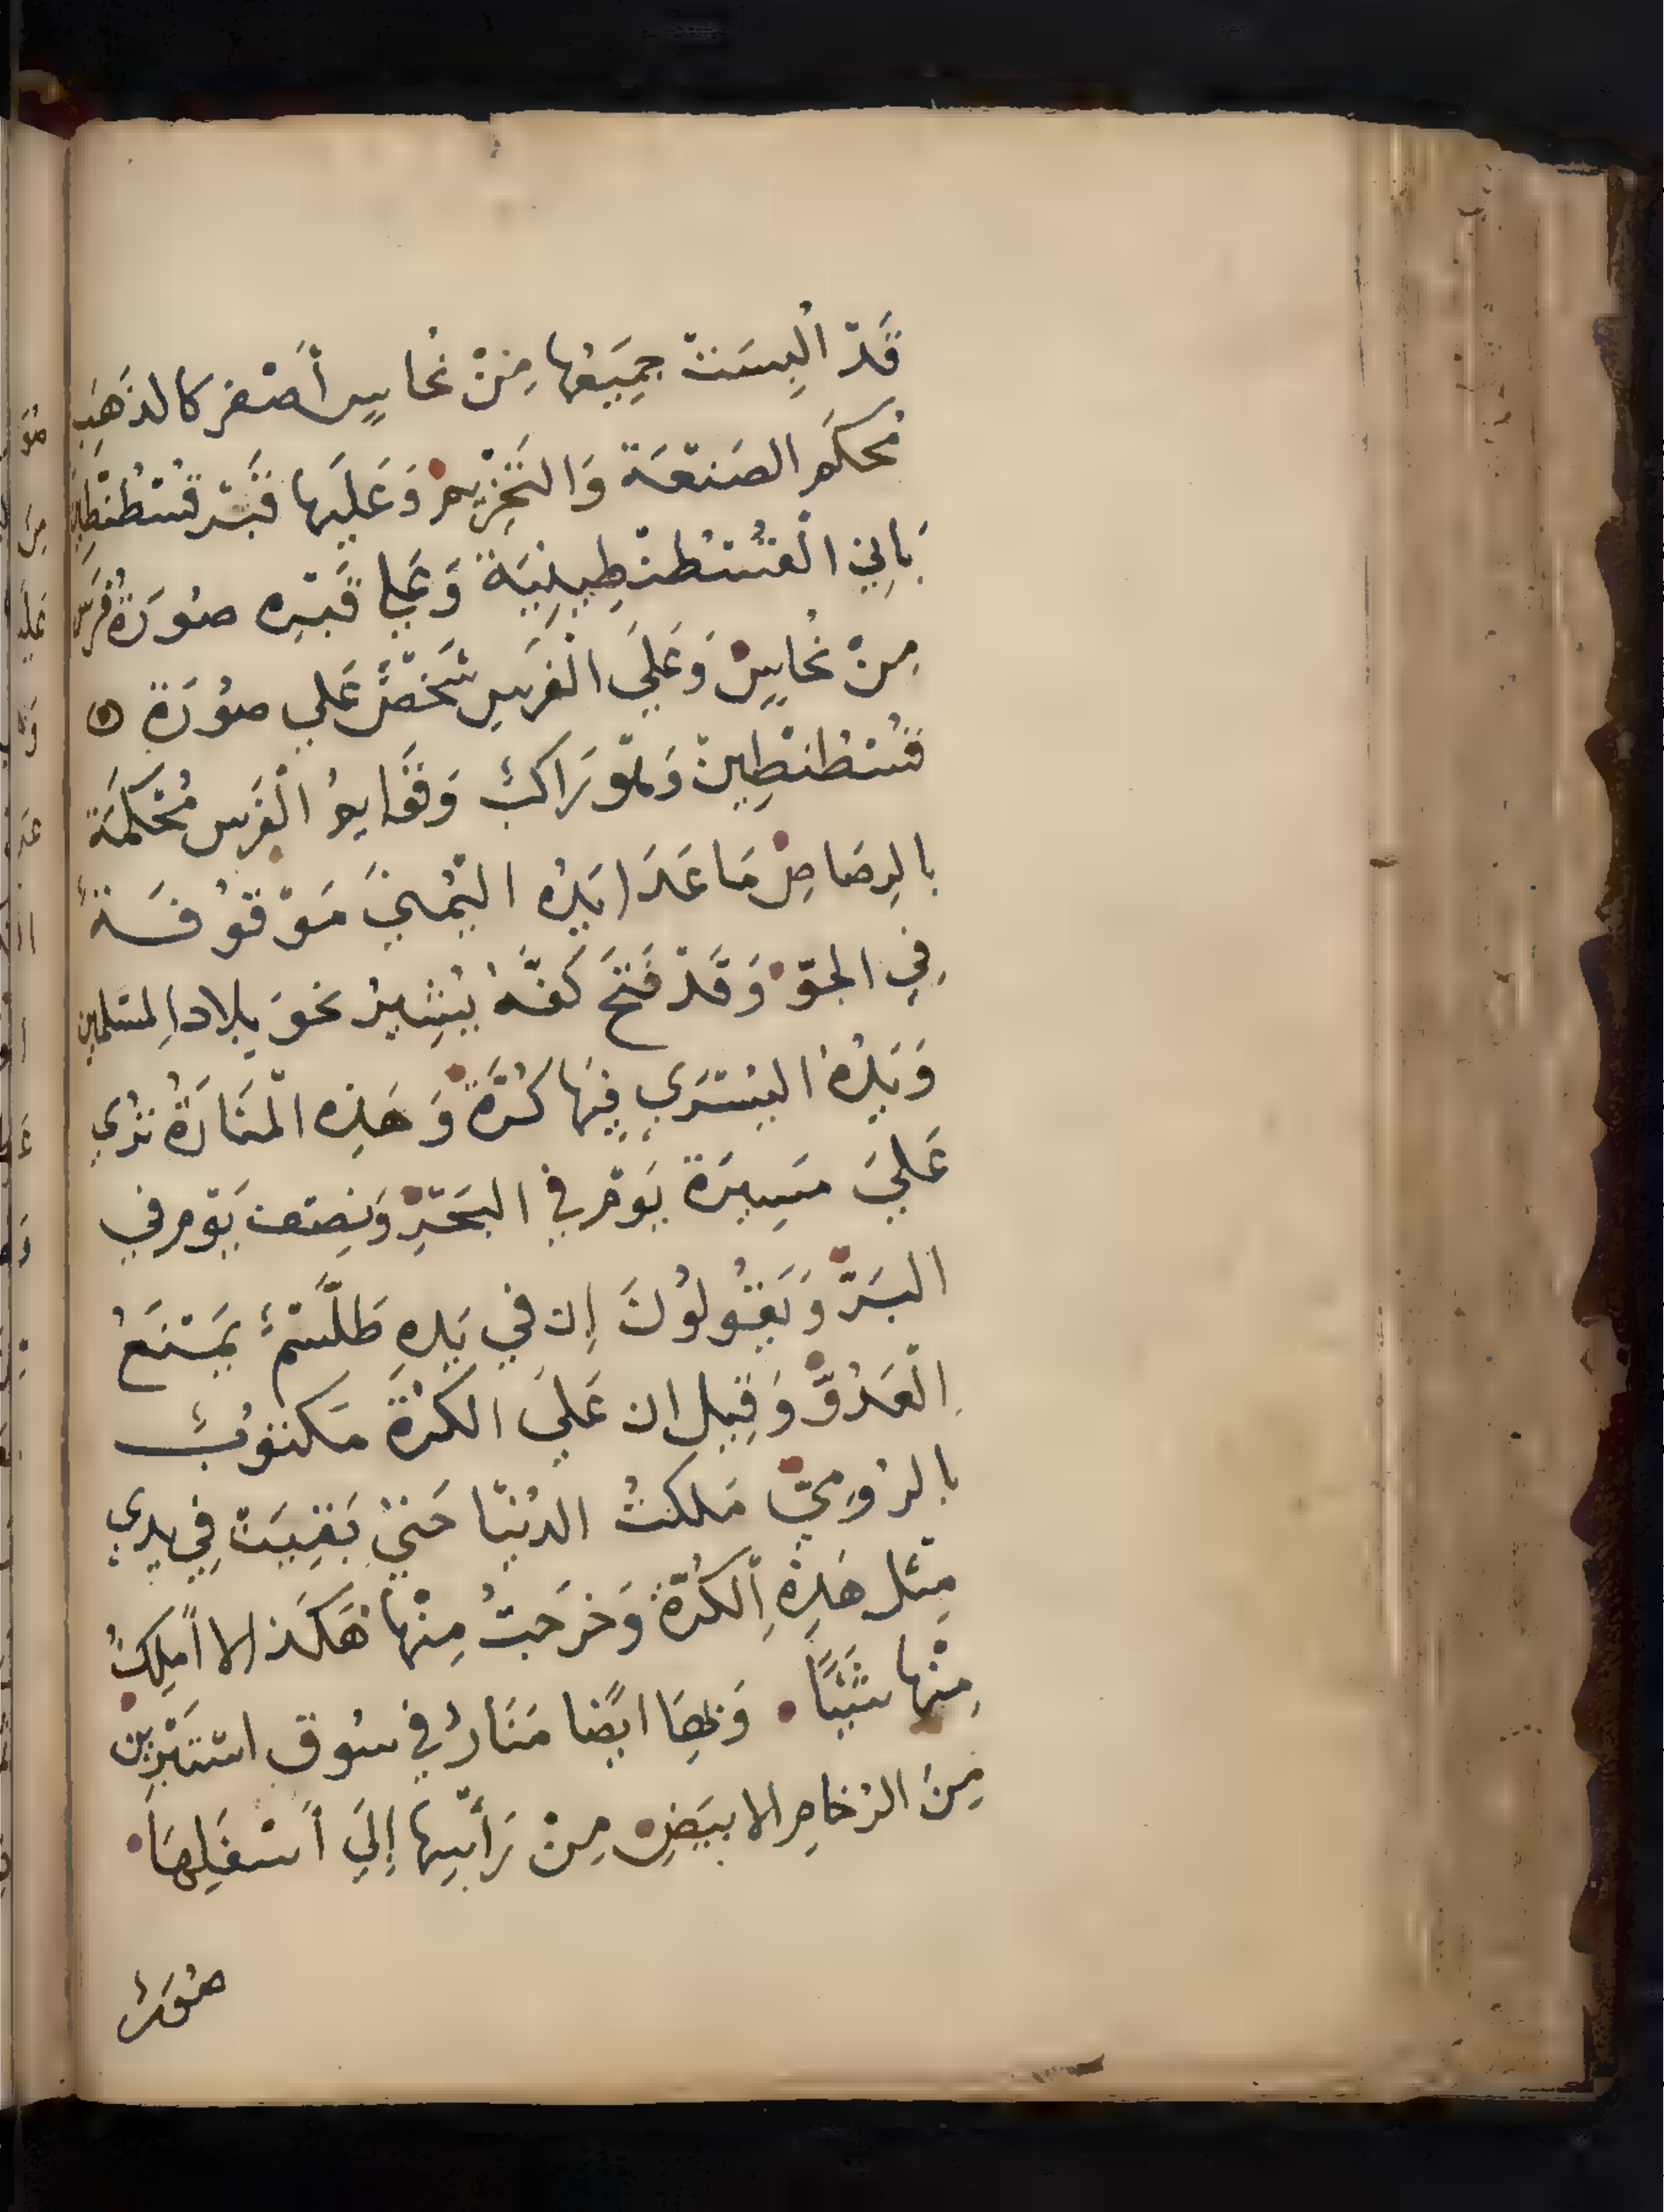 قَدْ اُلْبِسَتْ جَمِيَعُها مِنْ نُحَاسٍ أَصْفر كالذَهَبِ
مُحكَم الصَنعَة وَالتَخْزِيم وَعَلَيها قَبْر قُسْطُنْطِينَ
بَانِي الْقُسْطُنْطِينِيَة وَعَلي قَبْرِه صُورَةُ فَرَسٍ
مِنْ نُحاسٍ وَعَلَي الْفَرَسِ شَخْصٌ عَلي صُورَةِ
قُسْطُنطِينْ وَهْوَ رَاكبٌ وَقَوَايمُ الْفَرَس مُحْكَمَة
بالرِصَاصِ مَا عَدَا يَدُه اليُمْنيَ مَوْقُوفَةٌ
فِي الجوّ وَقَدْ فَتَحَ كَفَّهُ يُشِيرُ نحْوَ بِلاد المسْلمِين
وَيَدُهُ اليُسْرَي فِيهَا كُرَةٌ وَهَذِه الْمَنَارَةُ تُرَي
عَليَ مَسِيرَة يَوْم في البَحْرِ وَنِصْف يَوْم في
البَرّ وَيَقُولُونَ إن في يَدِهِ طَلَّسْمٌ يَمْنَعُ
الْعَدُوَّ وَقِيل ان عَلَيَ الكُرَةِ مَكتُوبٌ
بالرُومِيّ مَلكتُ الدُنْيَا حَتيّ بَقِيَتْ فِي يدي
مِثْل هَذِهِ اِلْكُرَة وَخرَجتُ مِنْها هَكَذا لا أملِكُ
مِنْها شَيْئًا وَبِهَا ايْضا مَنَارةٌ في سُوق استَبْرِين
مِنَ الرُخامِ الابيَضِ مِنْ رَأسِها إلَي أسْفَلِهَا
صُورَةُ